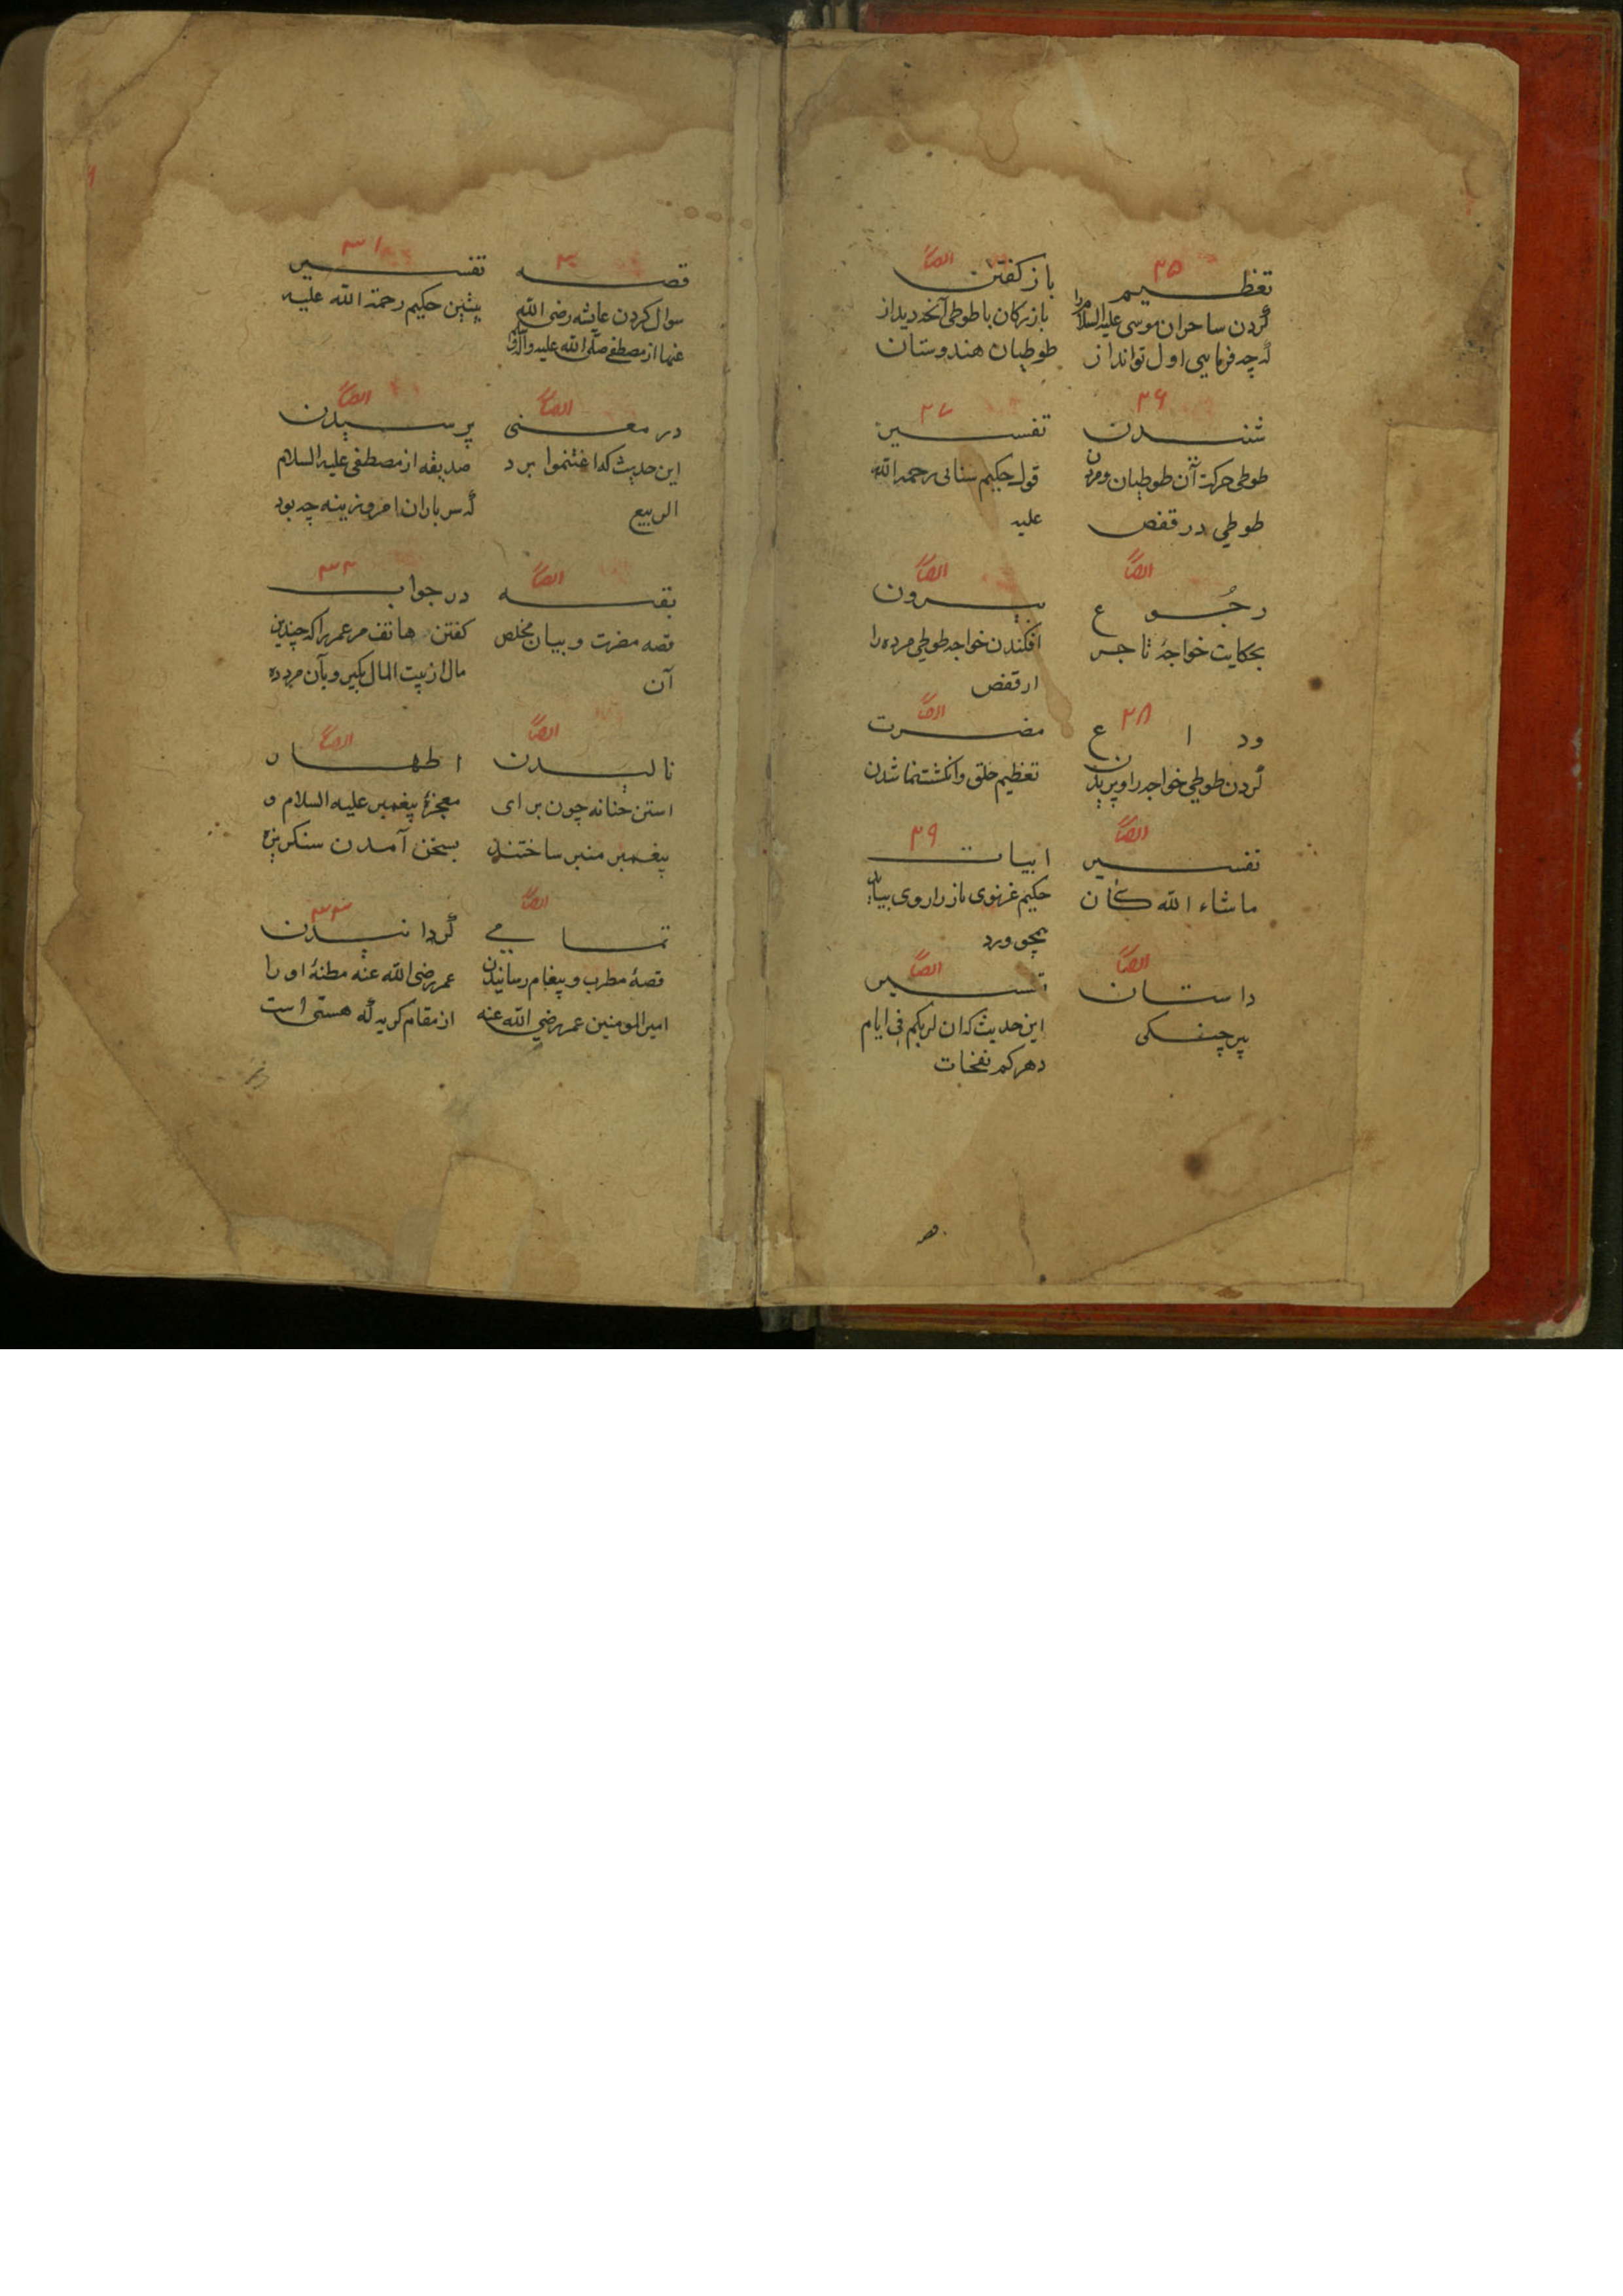 ۲۵
تعظیم
کردن ساحران موسی علیه السلام را
که چه فرمایی اول تو انداز
ایضاً
باز کفتن
بازرکان باطوطی آنچه دید از
طوطیان هندوستان
۲۶
شنیدن
طوطی حرکت آن طوطیان و مردن
طوطی در قفص
۲۷
تفسیر
قول حکیم سنائی رحمة الله
علیه
ایضاً
رجوع
بحکایت خواجهٔ تاجر
ایضاً
بیرون
افکندن خواجه طوطی مرده را
از قفص
۲۸
وداع
کردن طوطی خواجه را و پریدن
ایضاً
مضرت
تعظیم خلق و انکشتنما شدن
ایضاً
تفسیر
ماشاء الله کان
۲۹
ابیات
حکیم غزنوی ناز را روی بباید
همچو ورد
ایضاً
داستان
پیر چنکی
ایضاً
تفسیر
این حدیث که ان لربکم فی ایام
دهرکم نفخات
۳۰
قصه
سوال کردن عایشه رضی الله
عنها از مصطفی صلی الله علیه وآله
۳۱
تفسیر
پیشین حکیم رحمة الله علیه
ایضاً
در معنی
این حدیث که اغتنموا برد
الربیع
ایضاً
پرسیدن
صدیقه از مصطفی علیه السلام
که سر باران امروزینه چه بود
ایضاً
بقیه
قصه مضرت و بیان مخلص
آن
۳۲
در جواب
کفتن هاتف مر عمر را که چندین
مال از بیت المال بکیر و بآن مرد ده
ایضاً
نالیدن
استن حنانه چون برای
پیغمبر منبر ساختند
ایضاً
اظهار
معجزهٔ پیغمبر علیه السلام و
بسخن آمدن سنکریزه
ایضاً
تمامی
قصهٔ مطرب و پیغام رسانیدن
امیرالمومنین عمر رضی الله عنه
۳۳
کردانیدن
عمر رضی الله عنه مظنهٔ او را
از مقام کریه که هستی است